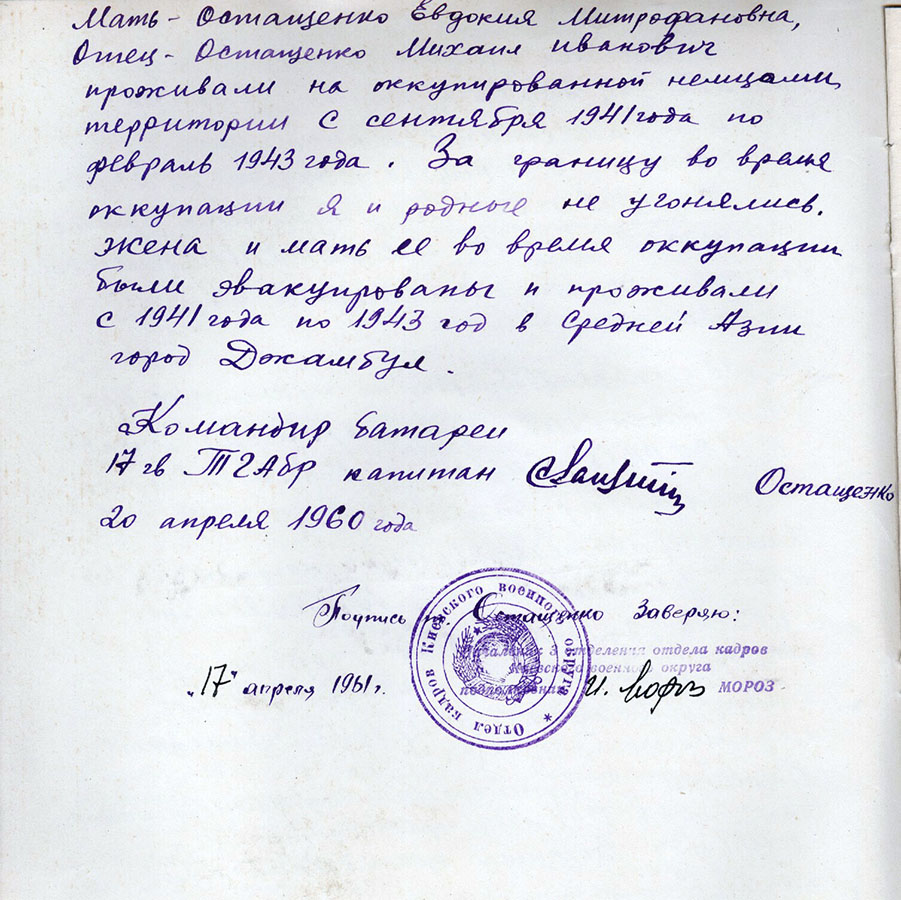 Мать - Остащенко Евдокия Митрофановна,
Отец - Остащенко Михаил Иванович
проживали на оккупированной немцами
территории с сентября 1941 года по
февраль 1943 года. За границу во время
оккупации я и родные не угонялись.
Жена и мать ее во время оккупации
были эвакуированы и проживали
с 1941 года по 1943 год в Средней Азии
город Джамбул.
Командир батареи
17 гв ТГАбр капитан Остащенко
20 апреля 1960 года
Подпись Остащенко Заверяю:
Начальник 3 отделения отдела кадров
Киевского военного округа
подполковник МОРОЗ
„17" апреля 1961 г.
Отдел кадров Киевского военного округа *